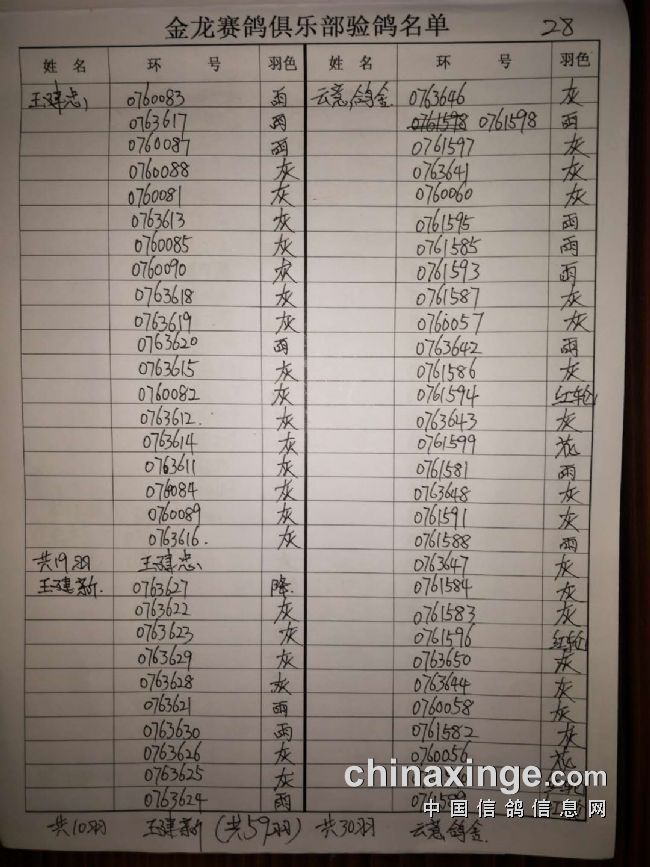 金龙赛鸽俱乐部验鸽名单 28
姓名 环号 羽色
王建忠 0760083 雨
0763617 雨
0760087 雨
0760088 灰
0760081 灰
0763613 灰
0760085 灰
0760090 灰
0763618 灰
0763619 灰
0763620 雨
0763615 灰
0760082 灰
0763612. 灰
0763614 灰
0763611 灰
0760084 灰
0760089 灰
0763616. 灰
共19羽 王建忠
王建新. 0763627 降.
0763622 灰
0763623 灰
0763629 灰
0763628 灰
0763621 雨
0763630 雨
0763626 灰
0763625 灰
0763624 雨
共10羽 王建新 (共59羽)
姓名 环号 羽色
云意鸽金. 0763646 灰
0761598 0761598 雨
0761597 灰
0763641 灰
0760060 灰
0761595 雨
0761585 雨
0761593 雨
0761587 灰
0760057 灰
0763642 雨
0761586 灰
0761594 红轮
0763643 灰
0761599 花
0761581 雨
0763648 灰
0761591 灰
0761588 雨
0763647 灰
0761584 灰
0761583 灰
0761596 红轮
0763650 灰
0763644 灰
0760058 灰
0761582 灰
0760056 花
共30羽 云意鸽金
chinaxinge.com
中国信鸽信息网